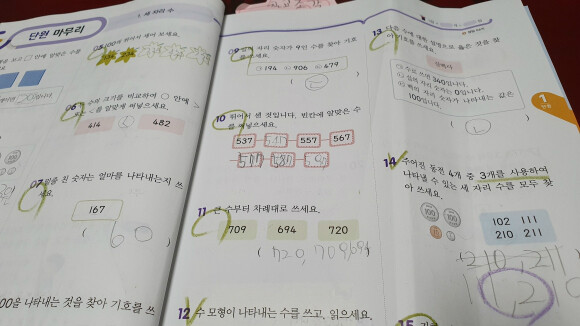 단원 마무리
1. 세 자리 수
06 수의 크기를 비교하여 ○ 안에
>, <를 알맞게 써넣으세요.
414 482
07 밑줄 친 숫자는 얼마를 나타내는지 쓰
세요.
167
( 60 )
00을 나타내는 것을 찾아 기호를 쓰
09 일의 자리 숫자가 9인 수를 찾아 기호
를 쓰세요.
㉠194 ㉡906 ㉢479
( ㉢ )
10 뛰어서 센 것입니다. 빈칸에 알맞은 수
를 써넣으세요.
537 547 557 567
577 587 597
11 큰 수부터 차례대로 쓰세요.
709 694 720
( 720, 709, 694
12 수 모형이 나타내는 수를 쓰고, 읽으세요.
13 다음 수에 대한 설명으로 옳은 것을 찾
아 기호를 쓰세요.
㉠ 수로 쓰면 340입니다.
㉡ 십의 자리 숫자는 0입니다.
㉢ 백의 자리 숫자가 나타내는 값은
100입니다.
( ㉡ )
1
단원
14 주어진 동전 4개 중 3개를 사용하여
나타낼 수 있는 세 자리 수를 모두 찾
아 쓰세요.
100 100
102 111
210 211
210, 211
111, 210
15